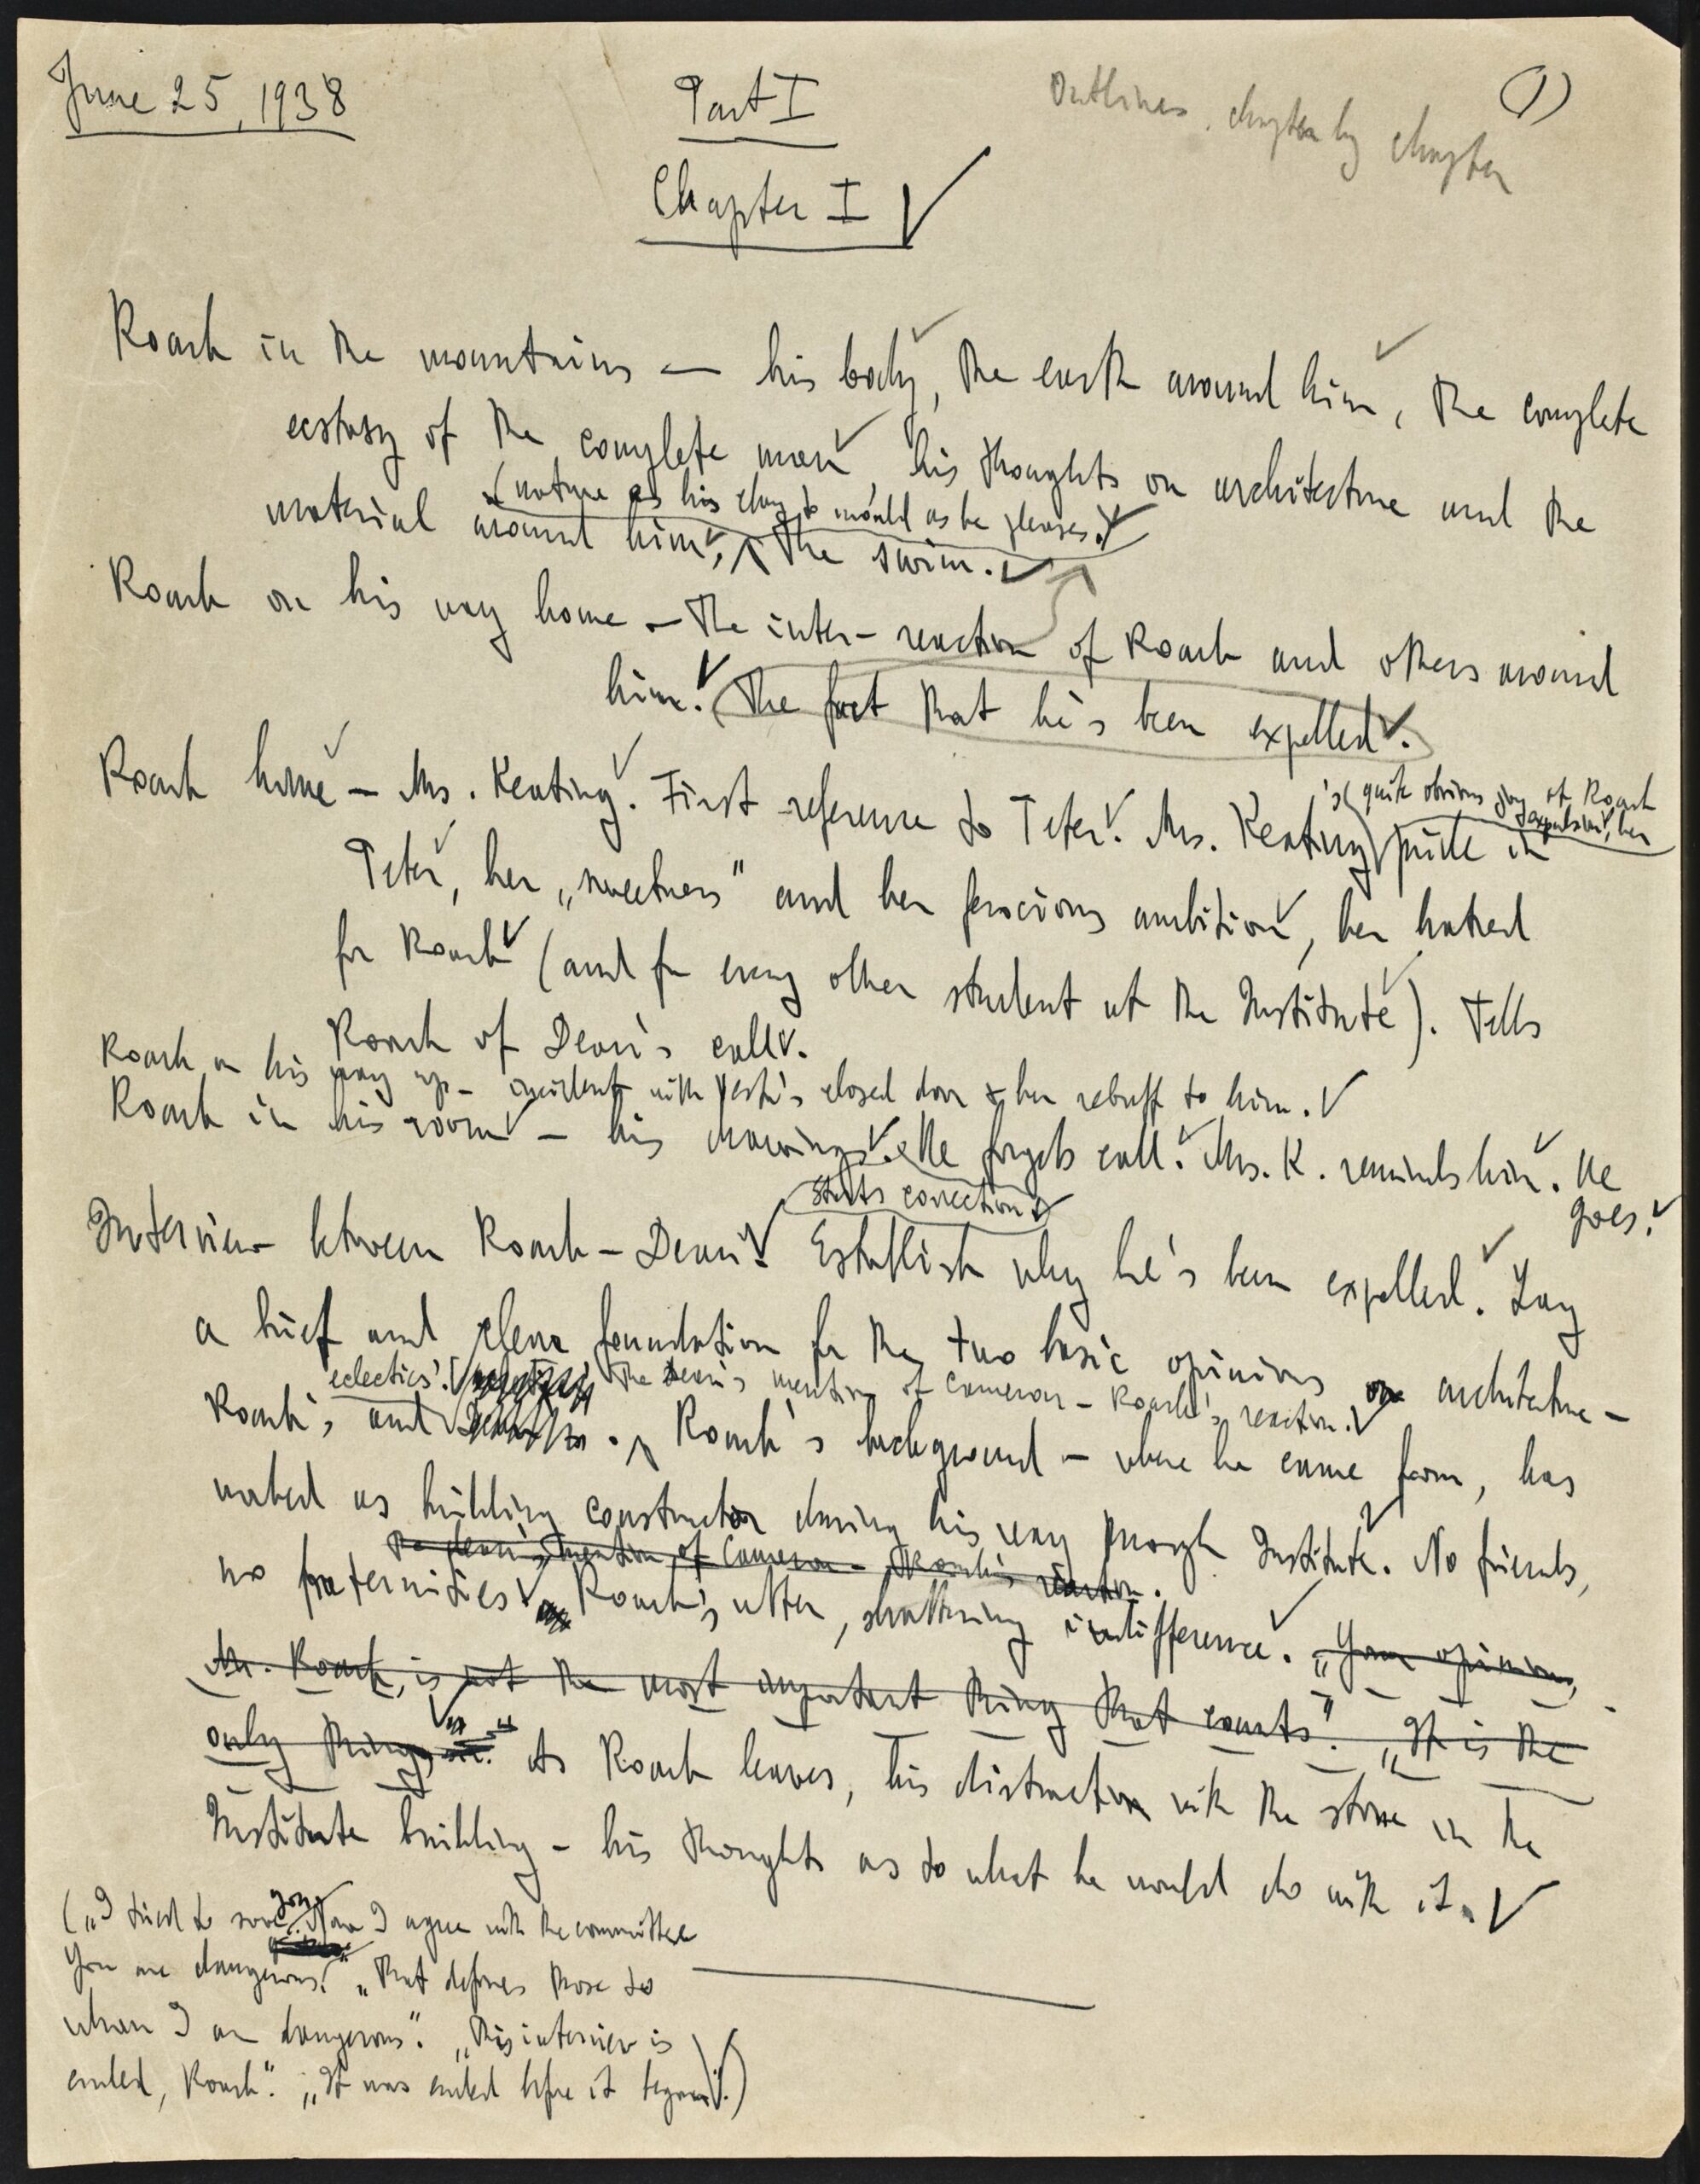 June 25, 1938
Part I
Outlines, chapter by chapter
(1)
Chapter I ✓
Roark in the mountains — his body, the earth around him, the complete
ecstasy of the complete man, his thoughts on architecture and the
(nature as his clay to mould as he pleases.)
material around him, the swim.
Roark on his way home — the inter-reaction of Roark and others around
him. (The fact that he's been expelled.
Roark home — Mrs. Keating. First reference to Peter. Mrs. Keating's pride in
(quite obvious joy at Roark
expulsion, her
Peter, her „sweetness" and her ferocious ambition, her hatred
for Roark (and for every other student at the Institute). Tells
Roark of Dean's call.
Roark on his way up — incident with closed door & her rebuff to him.
Roark in his room — his drawings. He forgets call. Mrs. K. reminds him. He
goes.
starts correction
Interview between Roark — Dean. Establish why he's been expelled. Lay
a brief and clear foundation for the two basic opinions on architecture —
eclectics'. The Dean's mention of Cameron — Roark's reaction.
Roark's and Roark's background — where he came from, has
worked as building constructor during his way through Institute. No friends,
The Dean's mention of Cameron — Roark's reaction.
no fraternities. Roark's utter, shattering indifference. „Your opinion,
Mr. Roark, is not the most important thing that counts". „It is the
only thing" As Roark leaves, his distraction with the stone in the
Institute building — his thoughts as to what he would do with it.
(„I tried to save you. Now I agree with the committee
You are dangerous." „That defines those to
whom I am dangerous". „This interview is
ended, Roark". „It was ended before it began".)